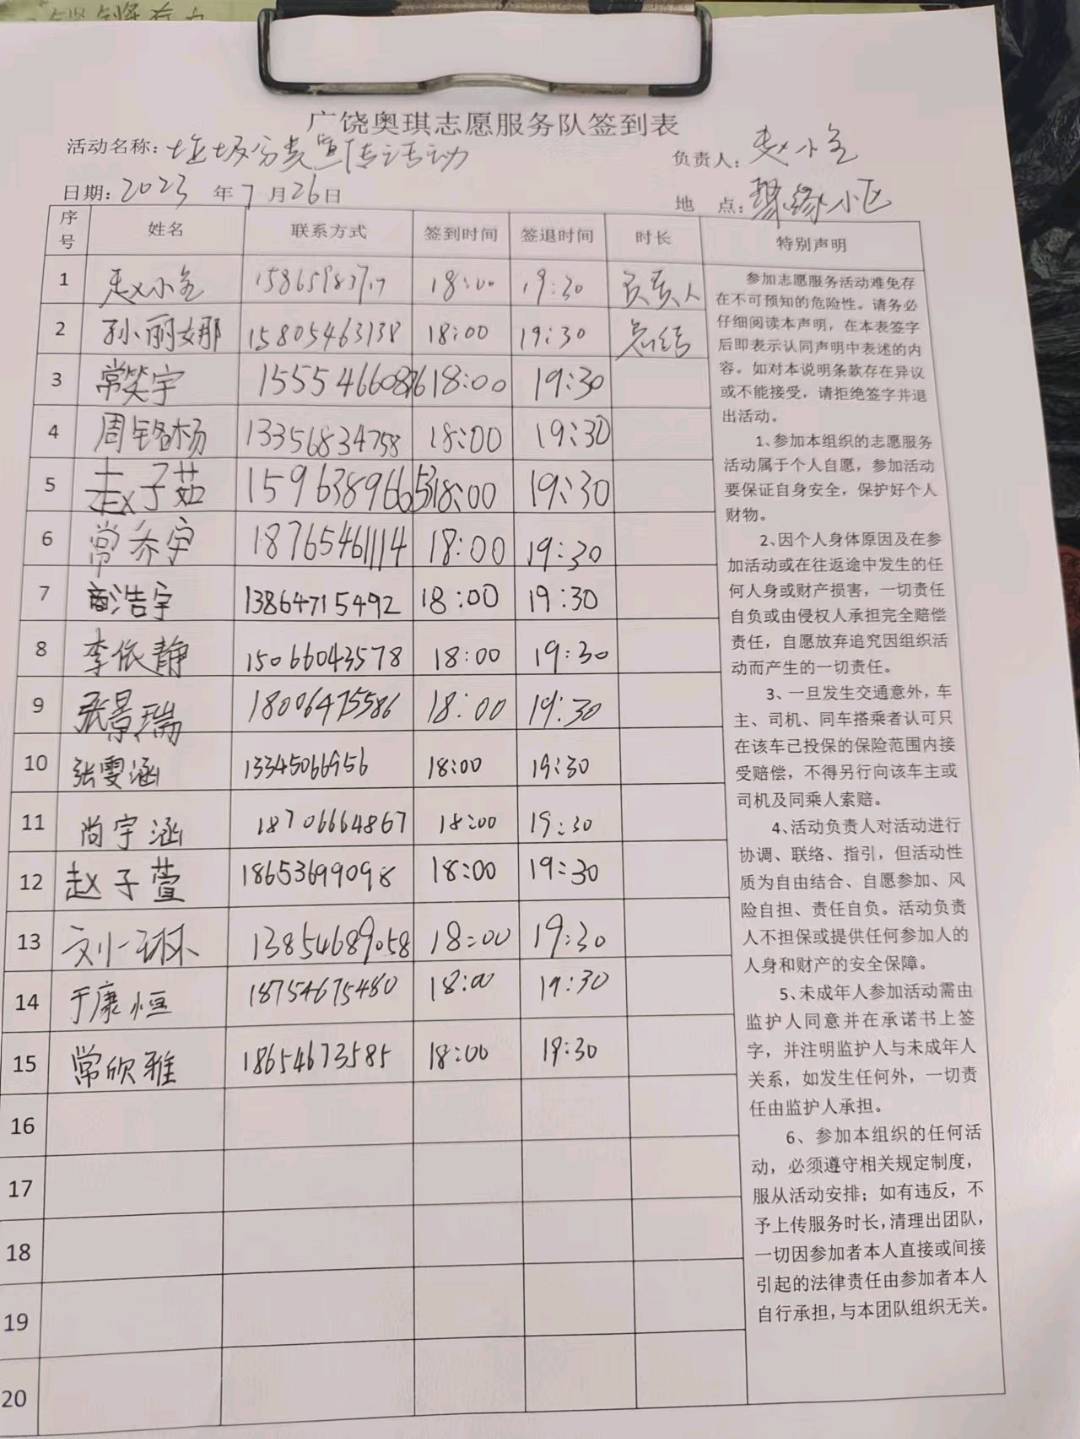 广饶奥琪志愿服务队签到表
活动名称：垃圾分类宣传活动 负责人：赵小全
日期：2023年7月26日 地 点：小区
序号 姓名 联系方式 签到时间 签退时间 时长 特别声明
1 赵小全 18:00 19:30 负责人
2 孙丽娜 15805463138 18:00 19:30 总结
3 常笑宇 18:00 19:30
4 周铭杨 13356834758 18:00 19:30
5 赵子茹 15963896653 18:00 19:30
6 常乔宇 18765461114 18:00 19:30
7 商浩宇 13864715492 18:00 19:30
8 李依静 15066043578 18:00 19:30
9 张景瑞 18006475586 18:00 19:30
10 张雯涵 13345066956 18:00 19:30
11 尚宇涵 18706664867 18:00 19:30
12 赵子萱 18653699098 18:00 19:30
13 刘一琳 13854689058 18:00 19:30
14 于康恒 18754675480 18:00 19:30
15 常欣雅 18654673585 18:00 19:30
16
17
18
19
20
参加志愿服务活动难免存
在不可预知的危险性。请务必
仔细阅读本声明，在本表签字
后即表示认同声明中表述的内
容。如对本说明条款存在异议
或不能接受，请拒绝签字并退
出活动。
1、参加本组织的志愿服务
活动属于个人自愿，参加活动
要保证自身安全，保护好个人
财物。
2、因个人身体原因及在参
加活动或在往返途中发生的任
何人身或财产损害，一切责任
自负或由侵权人承担完全赔偿
责任，自愿放弃追究因组织活
动而产生的一切责任。
3、一旦发生交通意外，车
主、司机、同车搭乘者认可只
在该车已投保的保险范围内接
受赔偿，不得另行向该车主或
司机及同乘人索赔。
4、活动负责人对活动进行
协调、联络、指引，但活动性
质为自由结合、自愿参加、风
险自担、责任自负。活动负责
人不担保或提供任何参加人的
人身和财产的安全保障。
5、未成年人参加活动需由
监护人同意并在承诺书上签
字，并注明监护人与未成年人
关系，如发生任何外，一切责
任由监护人承担。
6、参加本组织的任何活
动，必须遵守相关规定制度，
服从活动安排；如有违反，不
予上传服务时长，清理出团队，
一切因参加者本人直接或间接
引起的法律责任由参加者本人
自行承担，与本团队组织无关。